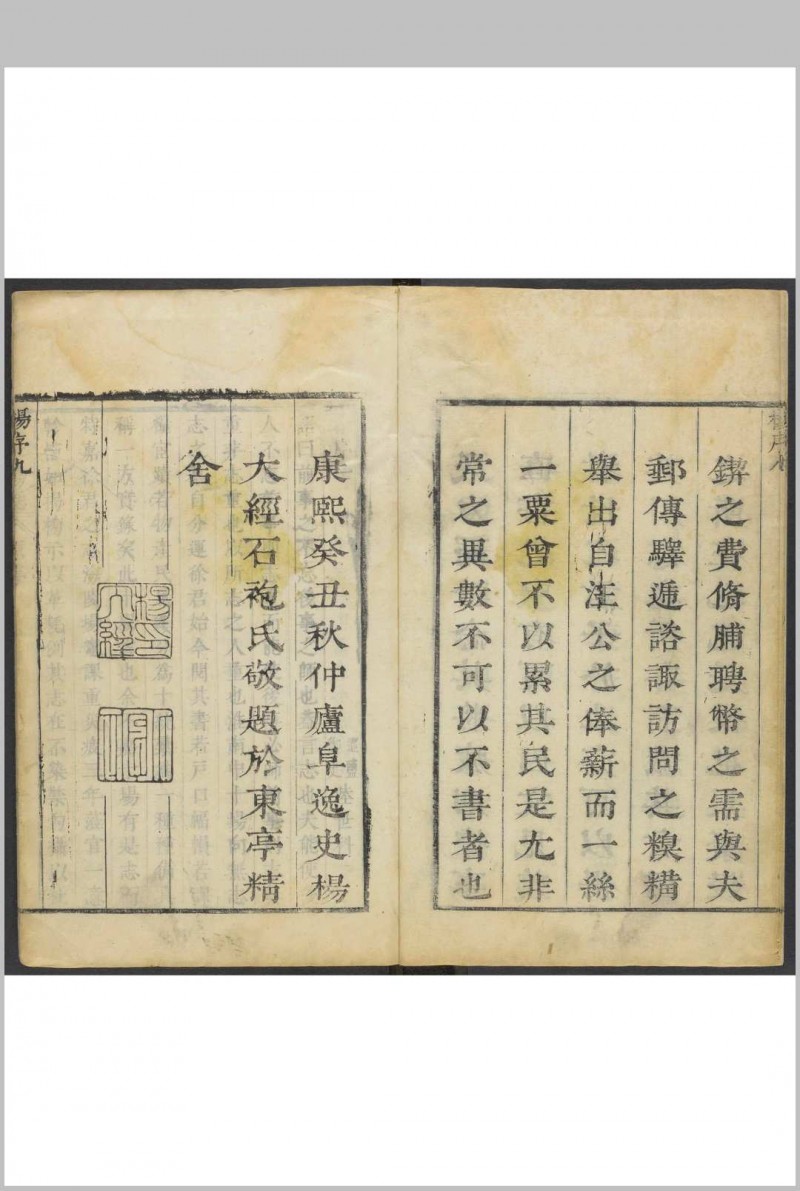 鍥之費脩脯聘幣之需與夫
郵傳驛遞諮諏訪問之糗糒
舉出自注公之俸薪而一絲
一粟曾不以累其民是尤非
常之異數不可以不書者也
康熙癸丑秋仲廬阜逸史楊
大經石袍氏敬題於東亭精
舍
楊印大經
楊序九